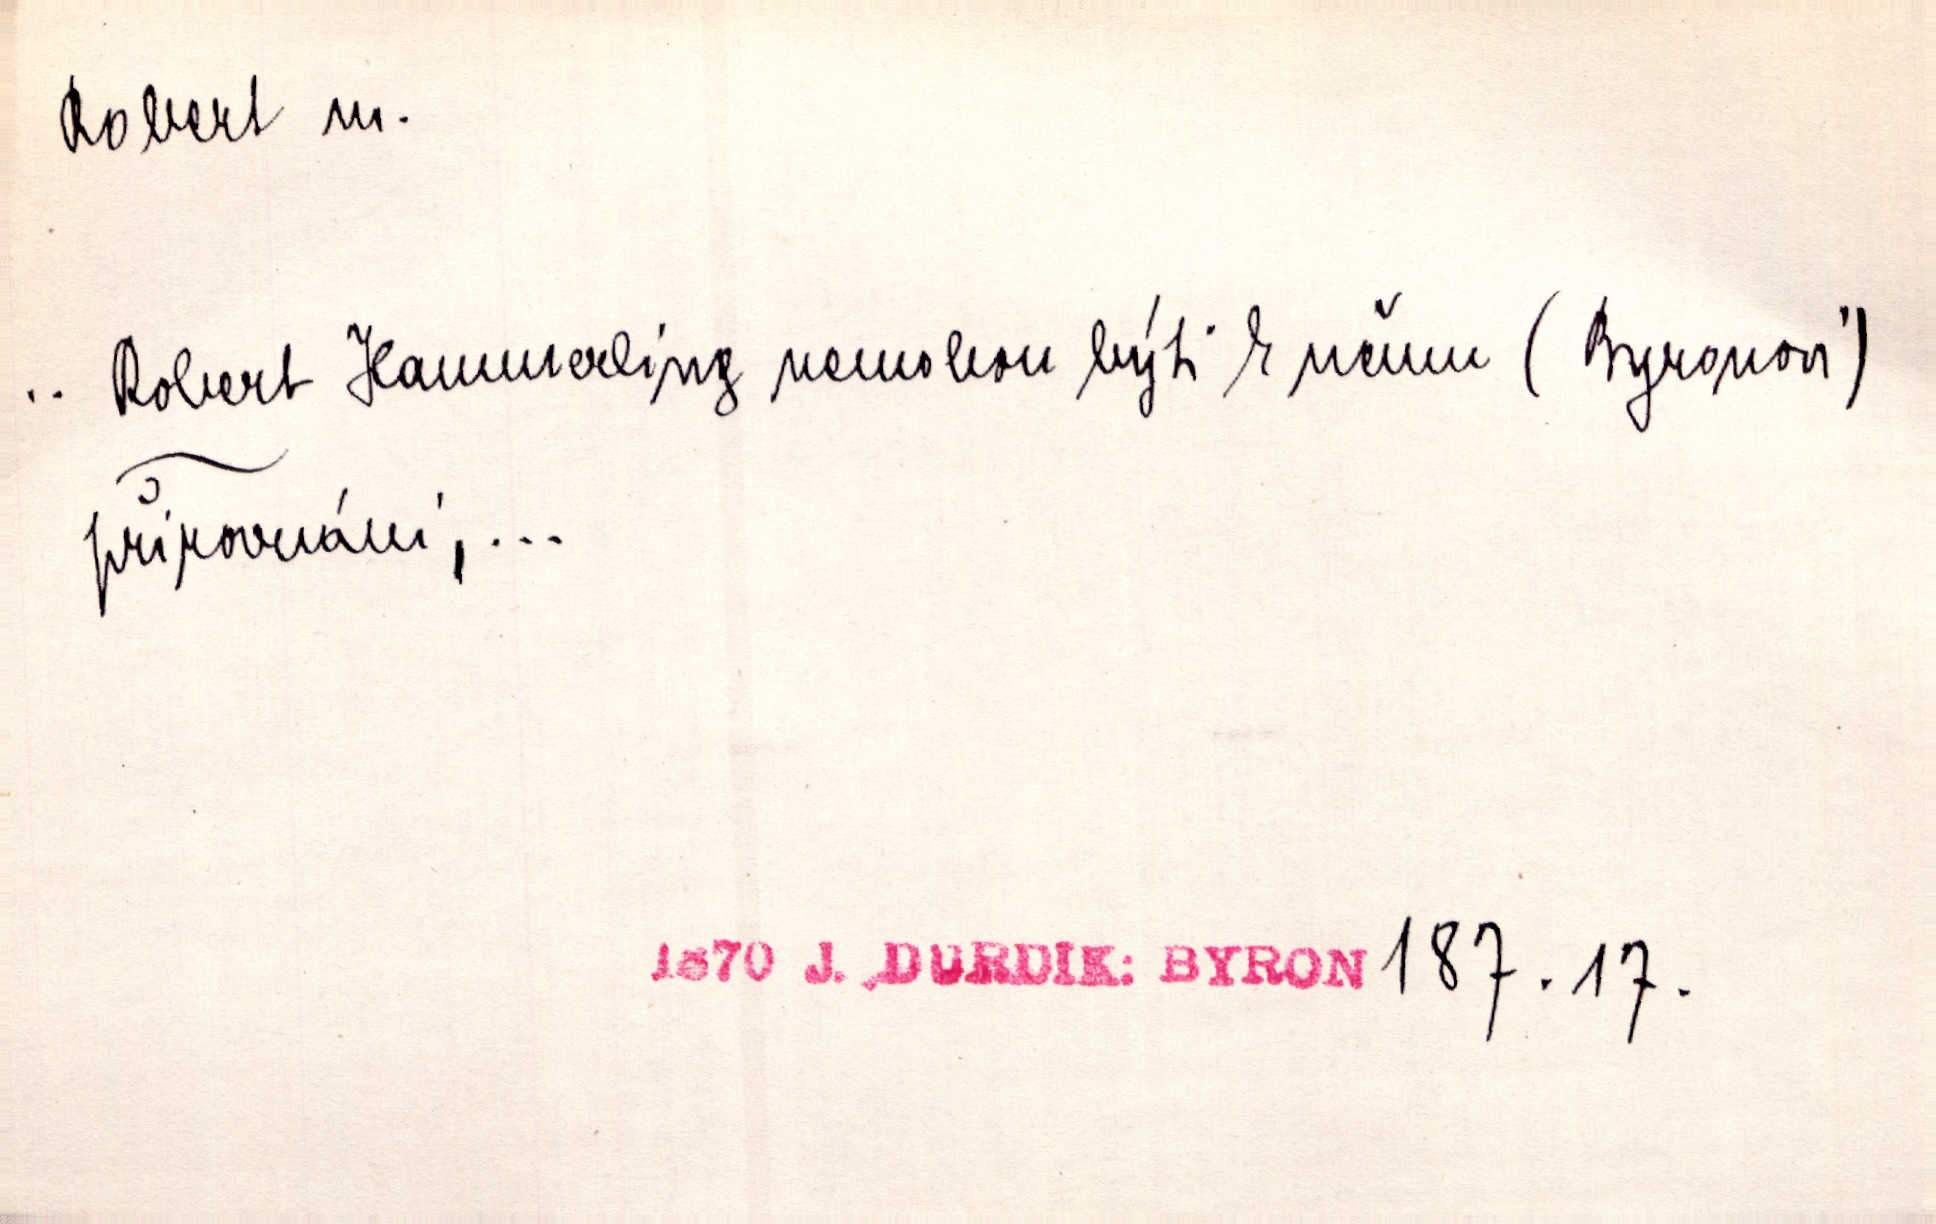 Robert m.
.. Robert Hammerling nemohou býti k němu (Byronovi)
přirovnáni, ...
1870 J. DURDIK: BYRON 187.17.